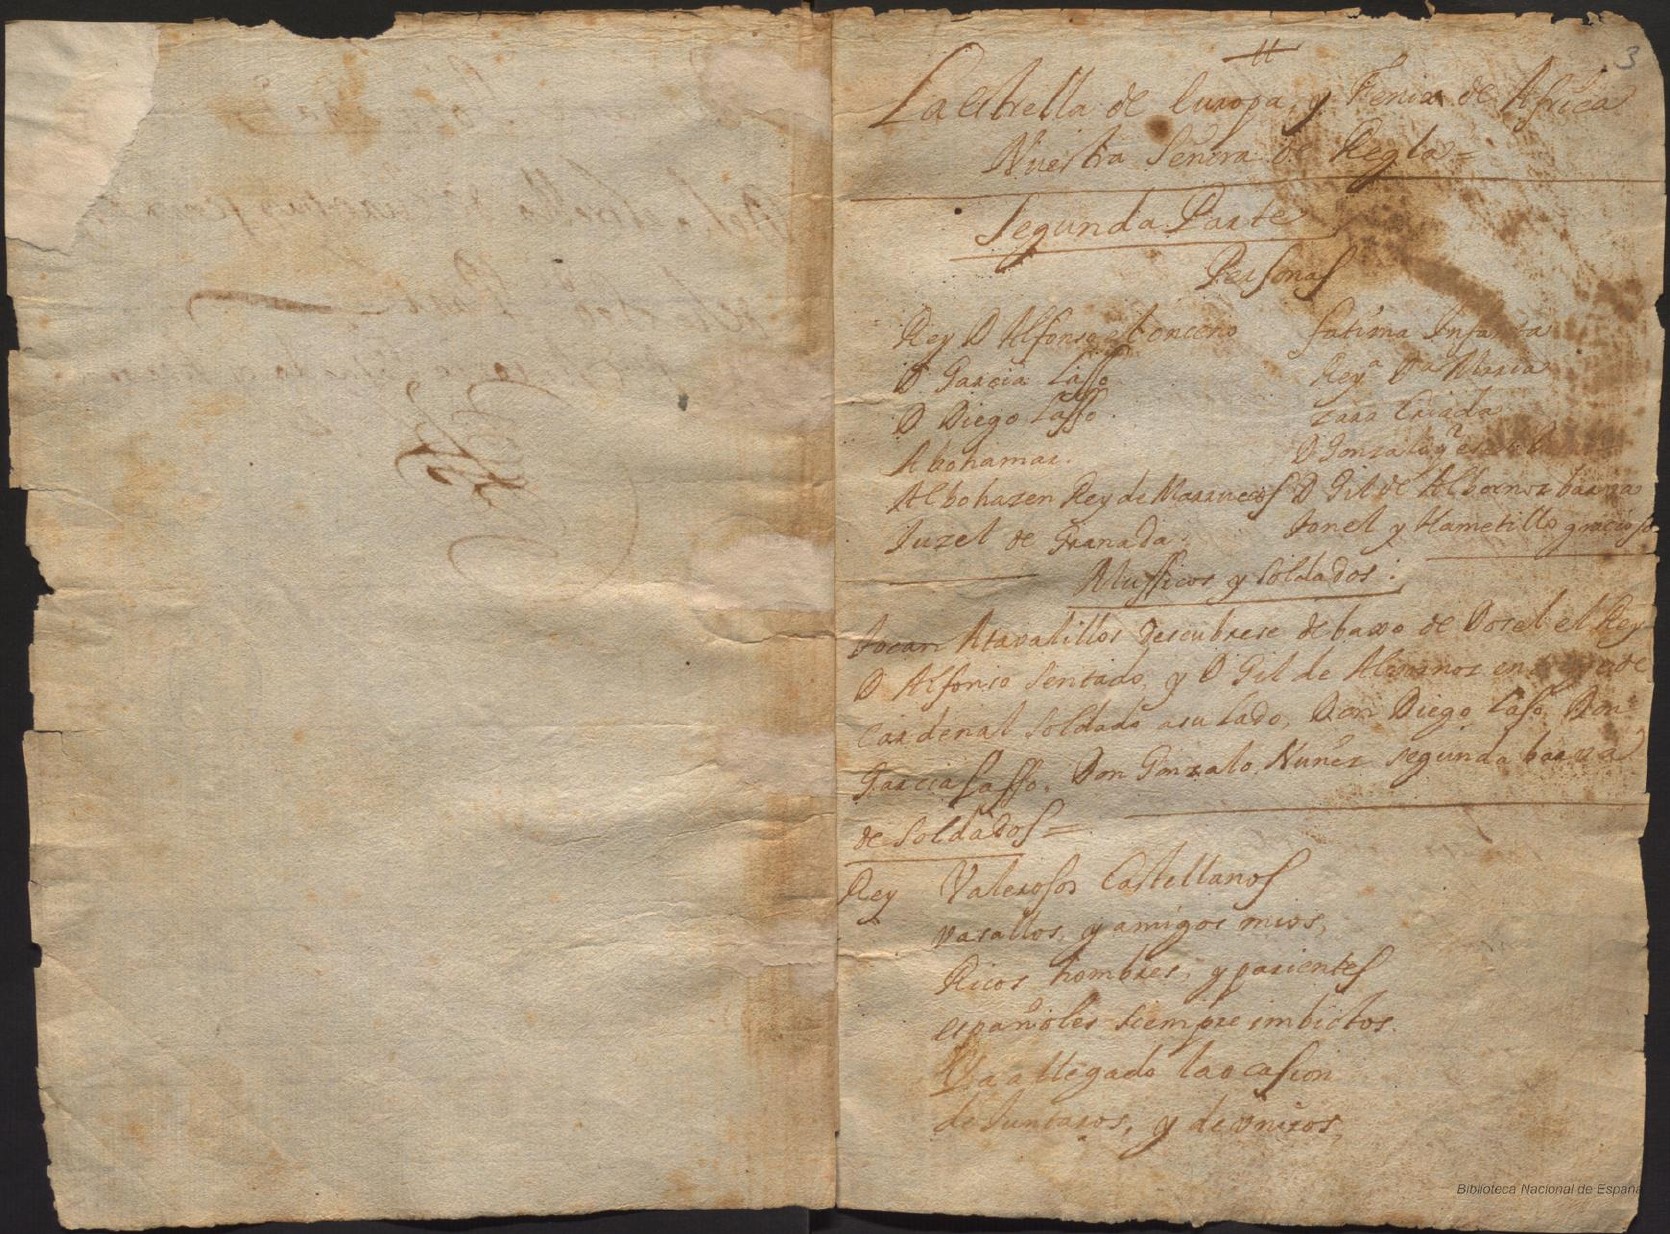 3
La estrella de Europa, y Fenix de Africa
Nuestra Señora de Regla =
Segunda Parte
Personas
Rey D Alfonso el onceno
fatima Infanta
D Garcia Lasso
Reyª Dª Maria
D Diego Lasso.
zara Criada
Abohamar.
D Gonzalo
Albohazen Rey de Marruecos
D Gil de Albornoz barva
Juzef de Granada.
tonel y Hametillo graciosos
Mussicos y soldados:
tocan Atavalillos descubrese debaxo de Dosel el Rey
D Alfonso Sentado, y D Gil de Albornoz en de
Cardenal soldado a su lado, Don Diego Laso, Don
Garcia Lasso, Don Gonzalo Nuñez segunda barva
de soldados =
Rey Valerosos Castellanos
vasallos, y amigos mios,
Ricos hombres, y parientes
españoles siempre imbictos.
Ya a llegado la ocasion
de Juntaros, y de uniros,
Biblioteca Nacional de España